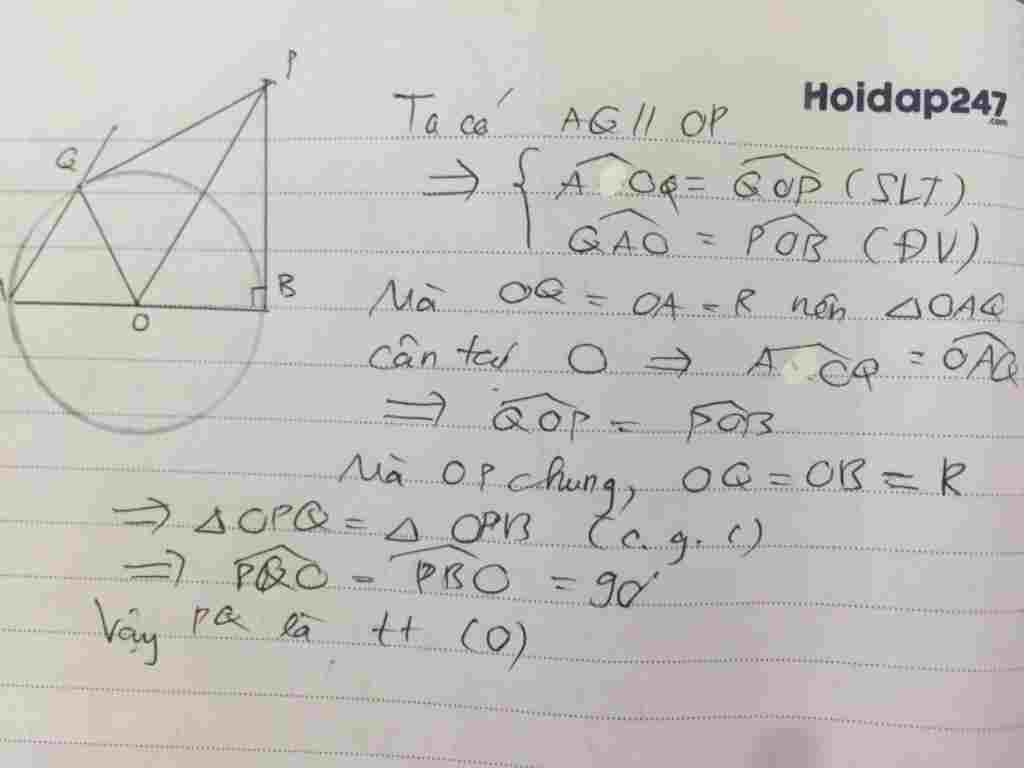 Hoidap247
.com
P
Q
A
O
B
Ta có AQ // OP
⇒ { A OQ = QOP (SLT)
QAO = POB (ĐV)
Mà OQ = OA = R nên △OAQ
cân tại O ⇒ A OQ = OAQ
⇒ QOP = POB
Mà OP chung, OQ = OB = R
⇒ △OPQ = △ OPB (c.g.c)
⇒ PQO = PBO = 90°
Vậy PQ là tt (O)